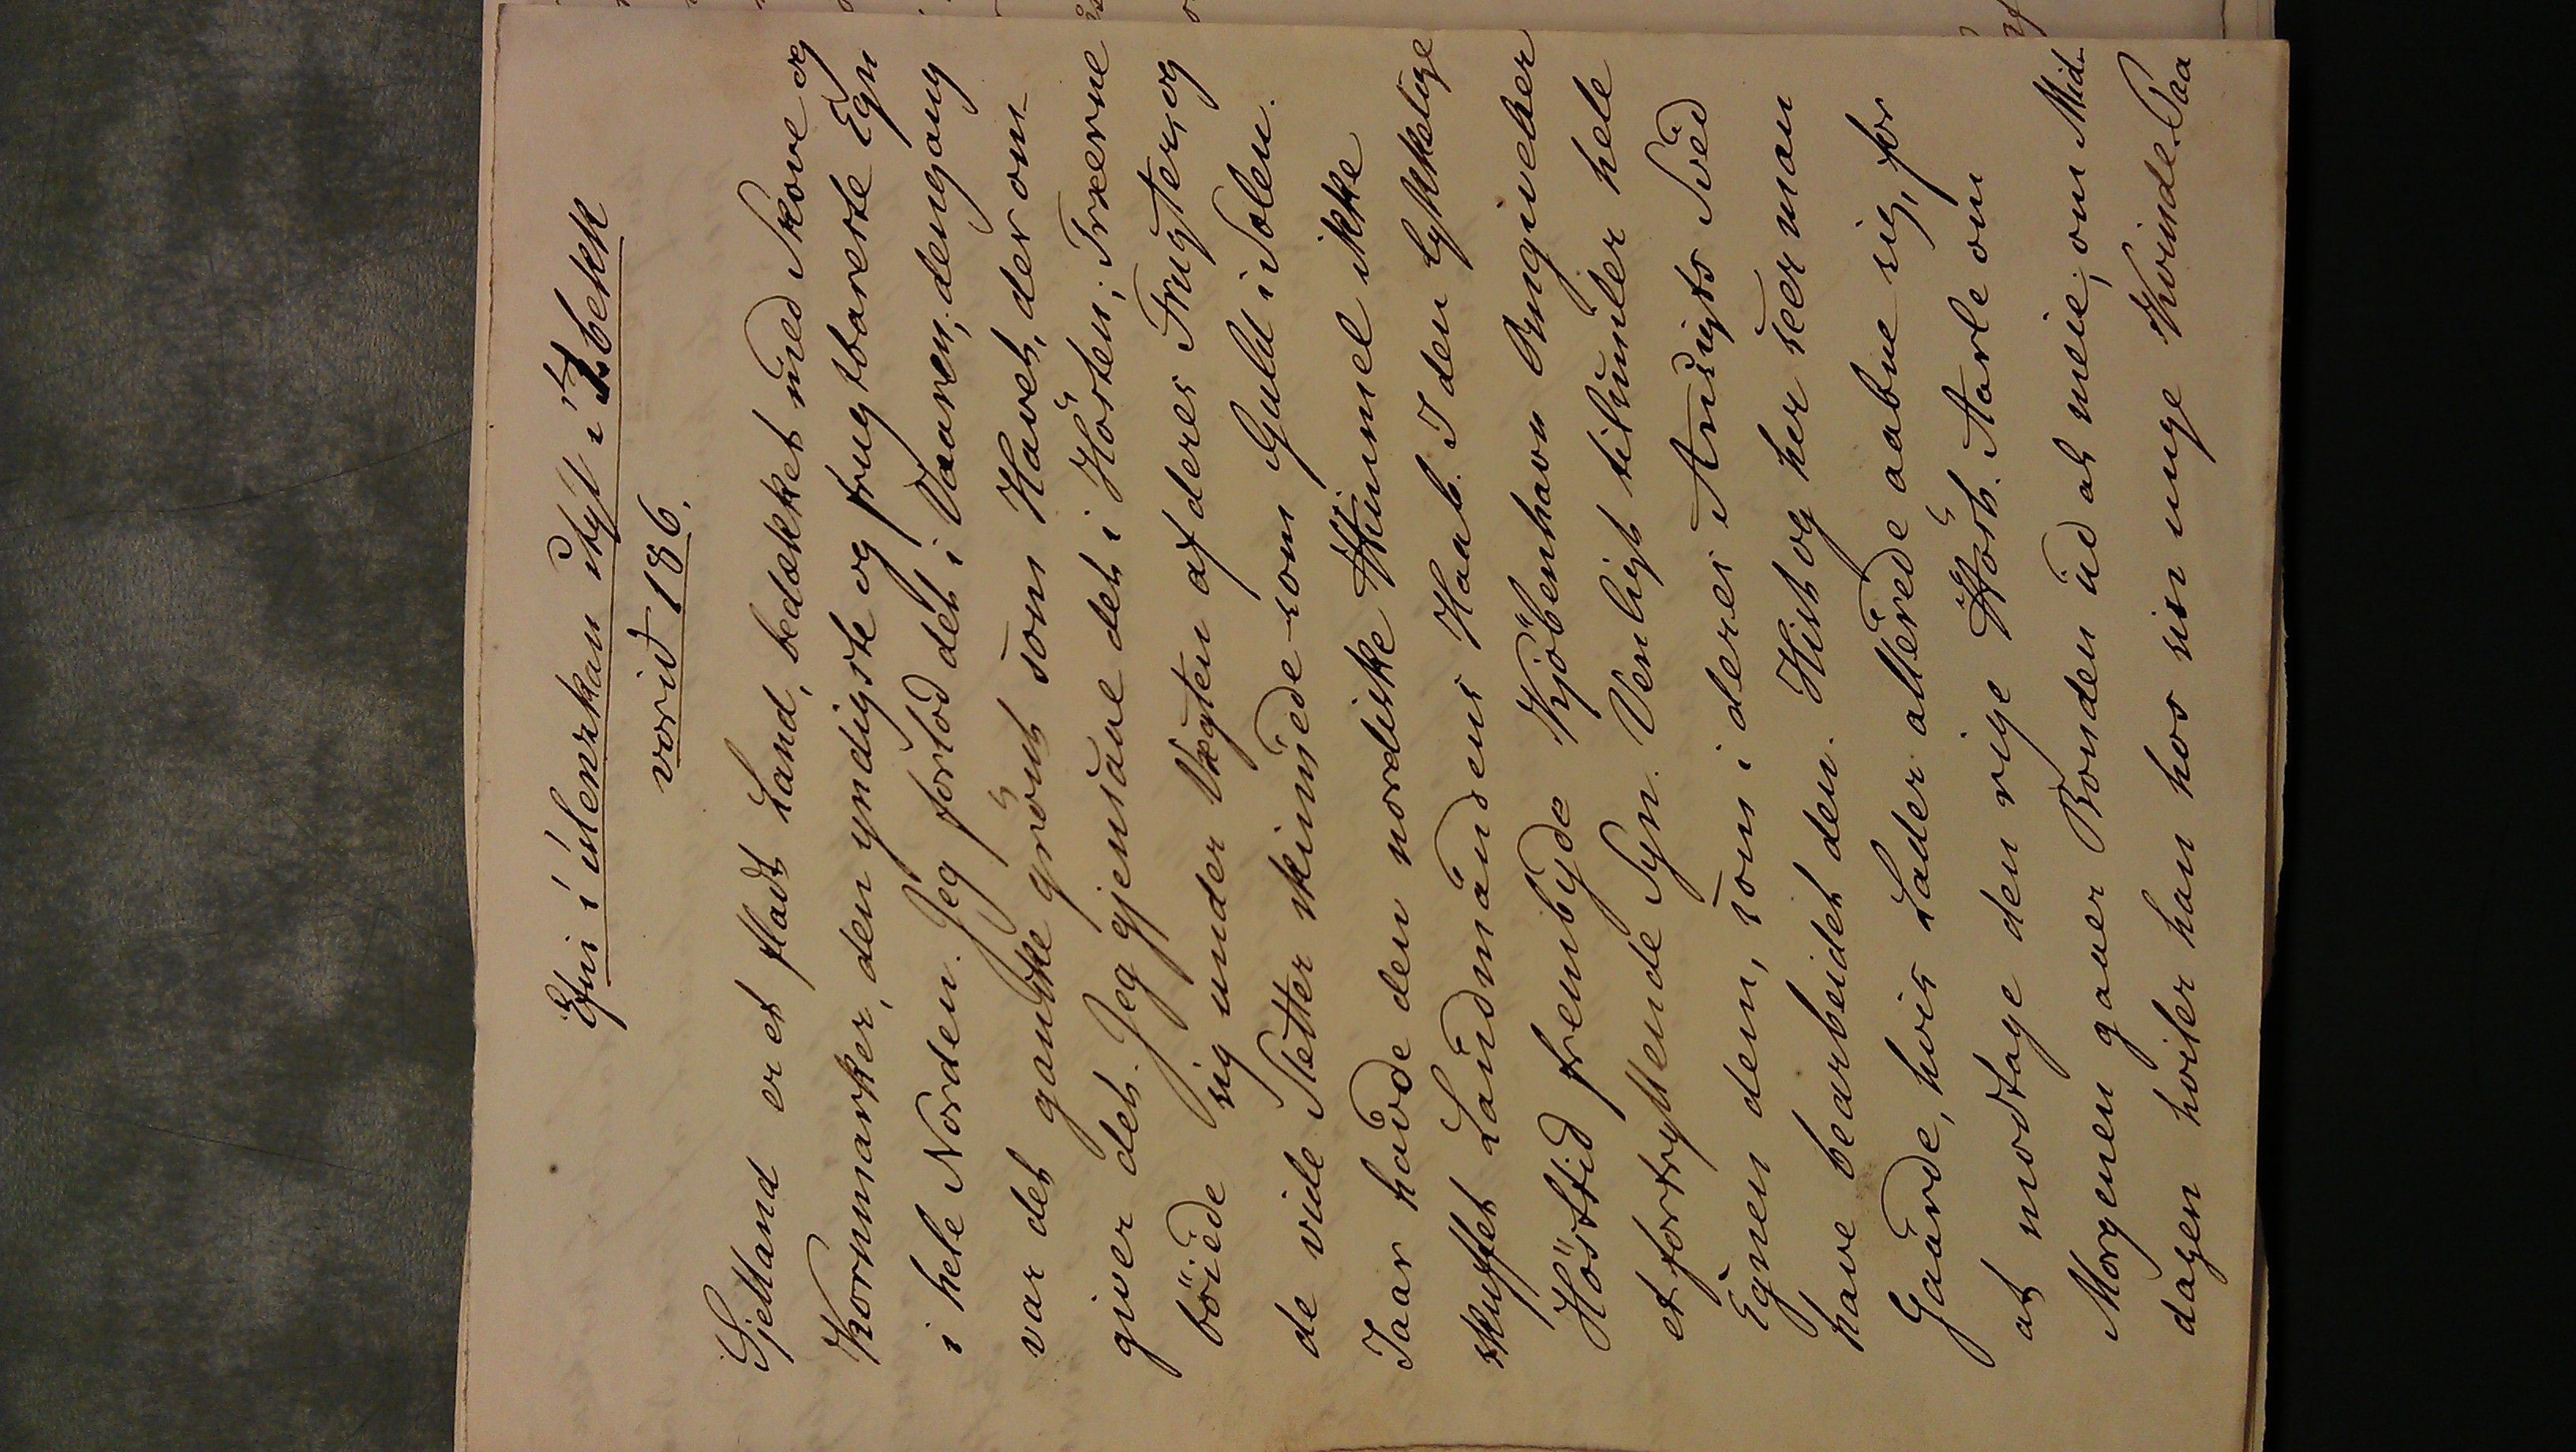 Efni í íslenzkan stýl í 2. bekk
vorið 1886.
Sjelland er et fladt Land, bedækket med Skove og
Kornmarker, den yndigste og frugtbareste Egn
i hele Norden. Jeg forlod det i Vaaren; dengang
var det ganske grönt som Havet, der om-
giver det. Jeg gjensaae det i Hösten; Træerne
böiede sig under Vægten af deres Frugter, og
de vide Sletter skinnede som Guld i Solen.
I aar havde den nordiske Himmel ikke
skuffet Landmandens Haab. I den lykkelige
Hösttid frembyde Kjöbenhavn Omgivelser
et fortryllende Syn. Venligt tilsmiler hele
Egnen dem, som i deres Ansigts Sved
have bearbeidet den. Hist og her seer man
Gaarde, hvis Lader allerede aabne sig, for
at modtage den rige Höst. Aarle om
Morgenen gaaer Bonden ud at meie; om Mid-
dagen hviler han hos sin unge Kvinde. Paa